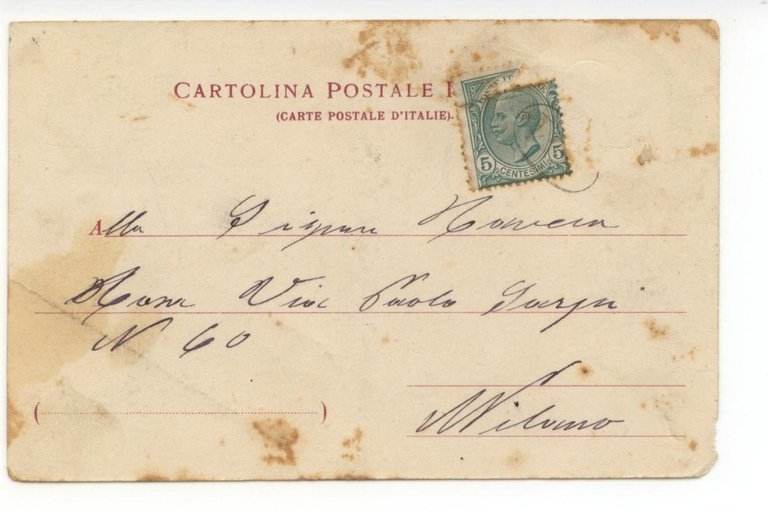 CARTOLINA POSTALE I
(CARTE POSTALE D'ITALIE).
5 CENTESIMI 5
Alla
Via Paolo Sarpi
N 60
Milano